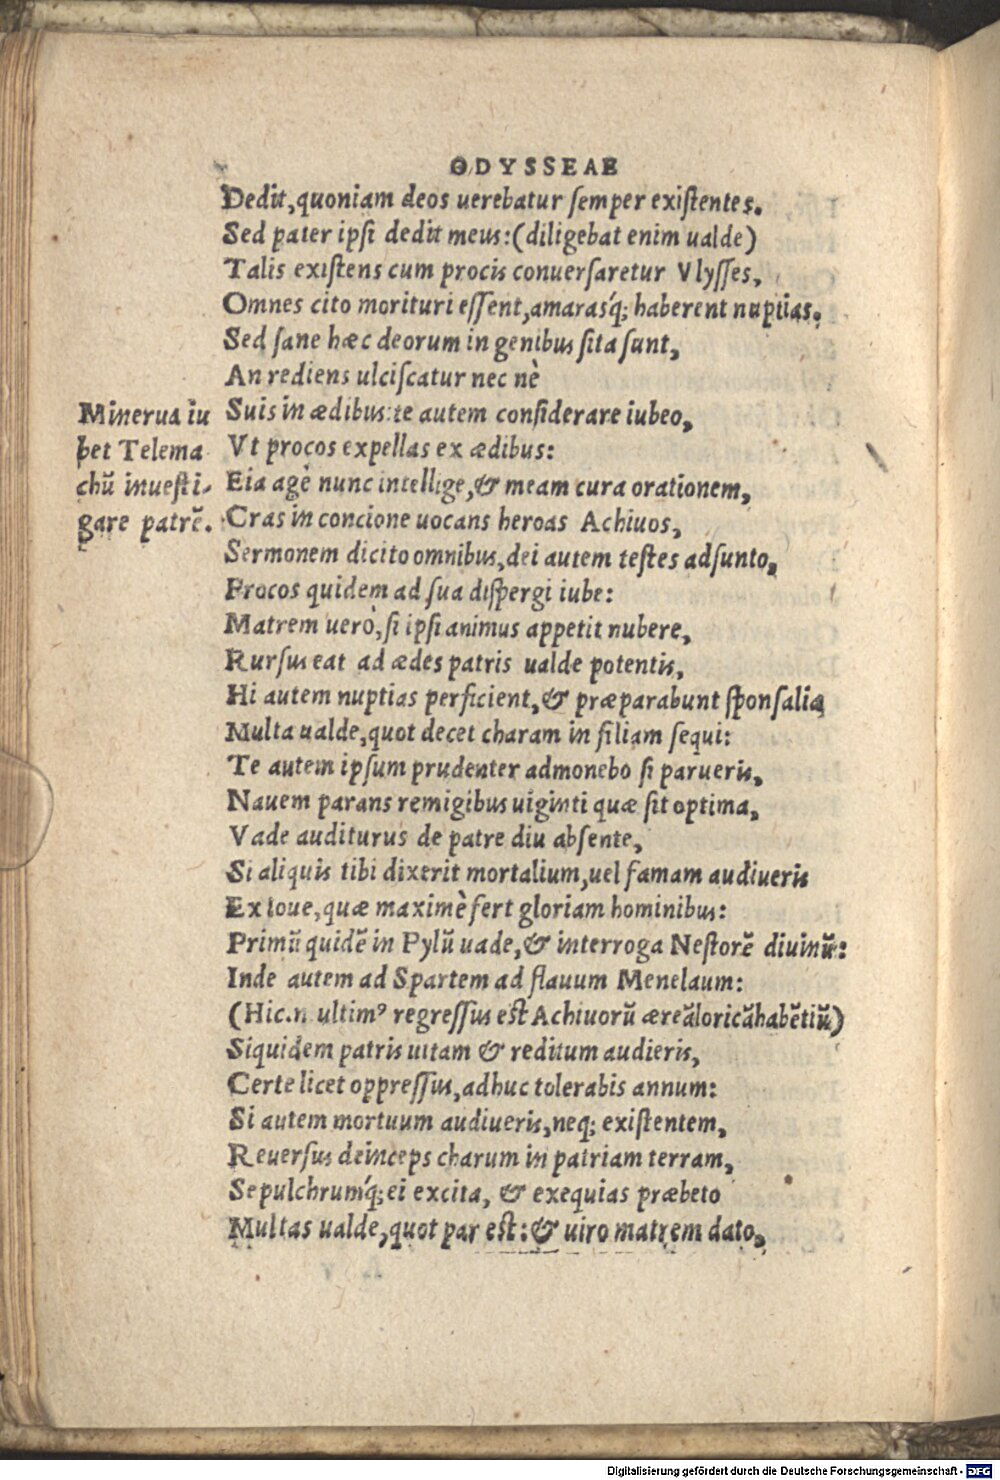 ODYSSEAE
Dedit, quoniam deos uerebatur semper existentes.
Sed pater ipsi dedit meus: (diligebat enim ualde)
Talis existens cum procis conuersaretur Vlysses,
Omnes cito morituri essent, amarasq́; haberent nuptias.
Sed sane hæc deorum in genibus sita sunt,
An rediens ulciscatur nec nè
Suis in ædibus: te autem considerare iubeo,
Vt procos expellas ex ædibus:
Eia agè nunc intellige, & meam cura orationem,
Cras in concione uocans heroas Achiuos,
Sermonem dicito omnibus, dei autem testes adsunto,
Procos quidem ad sua dispergi iube:
Matrem uerò, si ipsi animus appetit nubere,
Rursus eat ad ædes patris ualde potentis,
Hi autem nuptias perficient, & præparabunt sponsalia
Multa ualde, quot decet charam in filiam sequi:
Te autem ipsum prudenter admonebo si parueris,
Nauem parans remigibus uiginti quæ sit optima,
Vade auditurus de patre diu absente,
Si aliquis tibi dixerit mortalium, uel famam audiueris
Ex Ioue, quæ maximè fert gloriam hominibus:
Primũ quidẽ in Pylũ uade, & interroga Nestorẽ diuinũ:
Inde autem ad Spartem ad flauum Menelaum:
(Hic.n. ultimꝰ regressus est Achiuorũ æreãloricãhabẽtiũ)
Siquidem patris uitam & reditum audieris,
Certe licet oppressus, adhuc tolerabis annum:
Si autem mortuum audiueris, neq; existentem,
Reuersus deinceps charum in patriam terram,
Sepulchrumq́; ei excita, & exequias præbeto
Multas ualde, quot par est: & uiro matrem dato,
Minerua iu
bet Telema
chũ inuesti-
gare patrẽ.
Digitalisierung gefördert durch die Deutsche Forschungsgemeinschaft - DFG